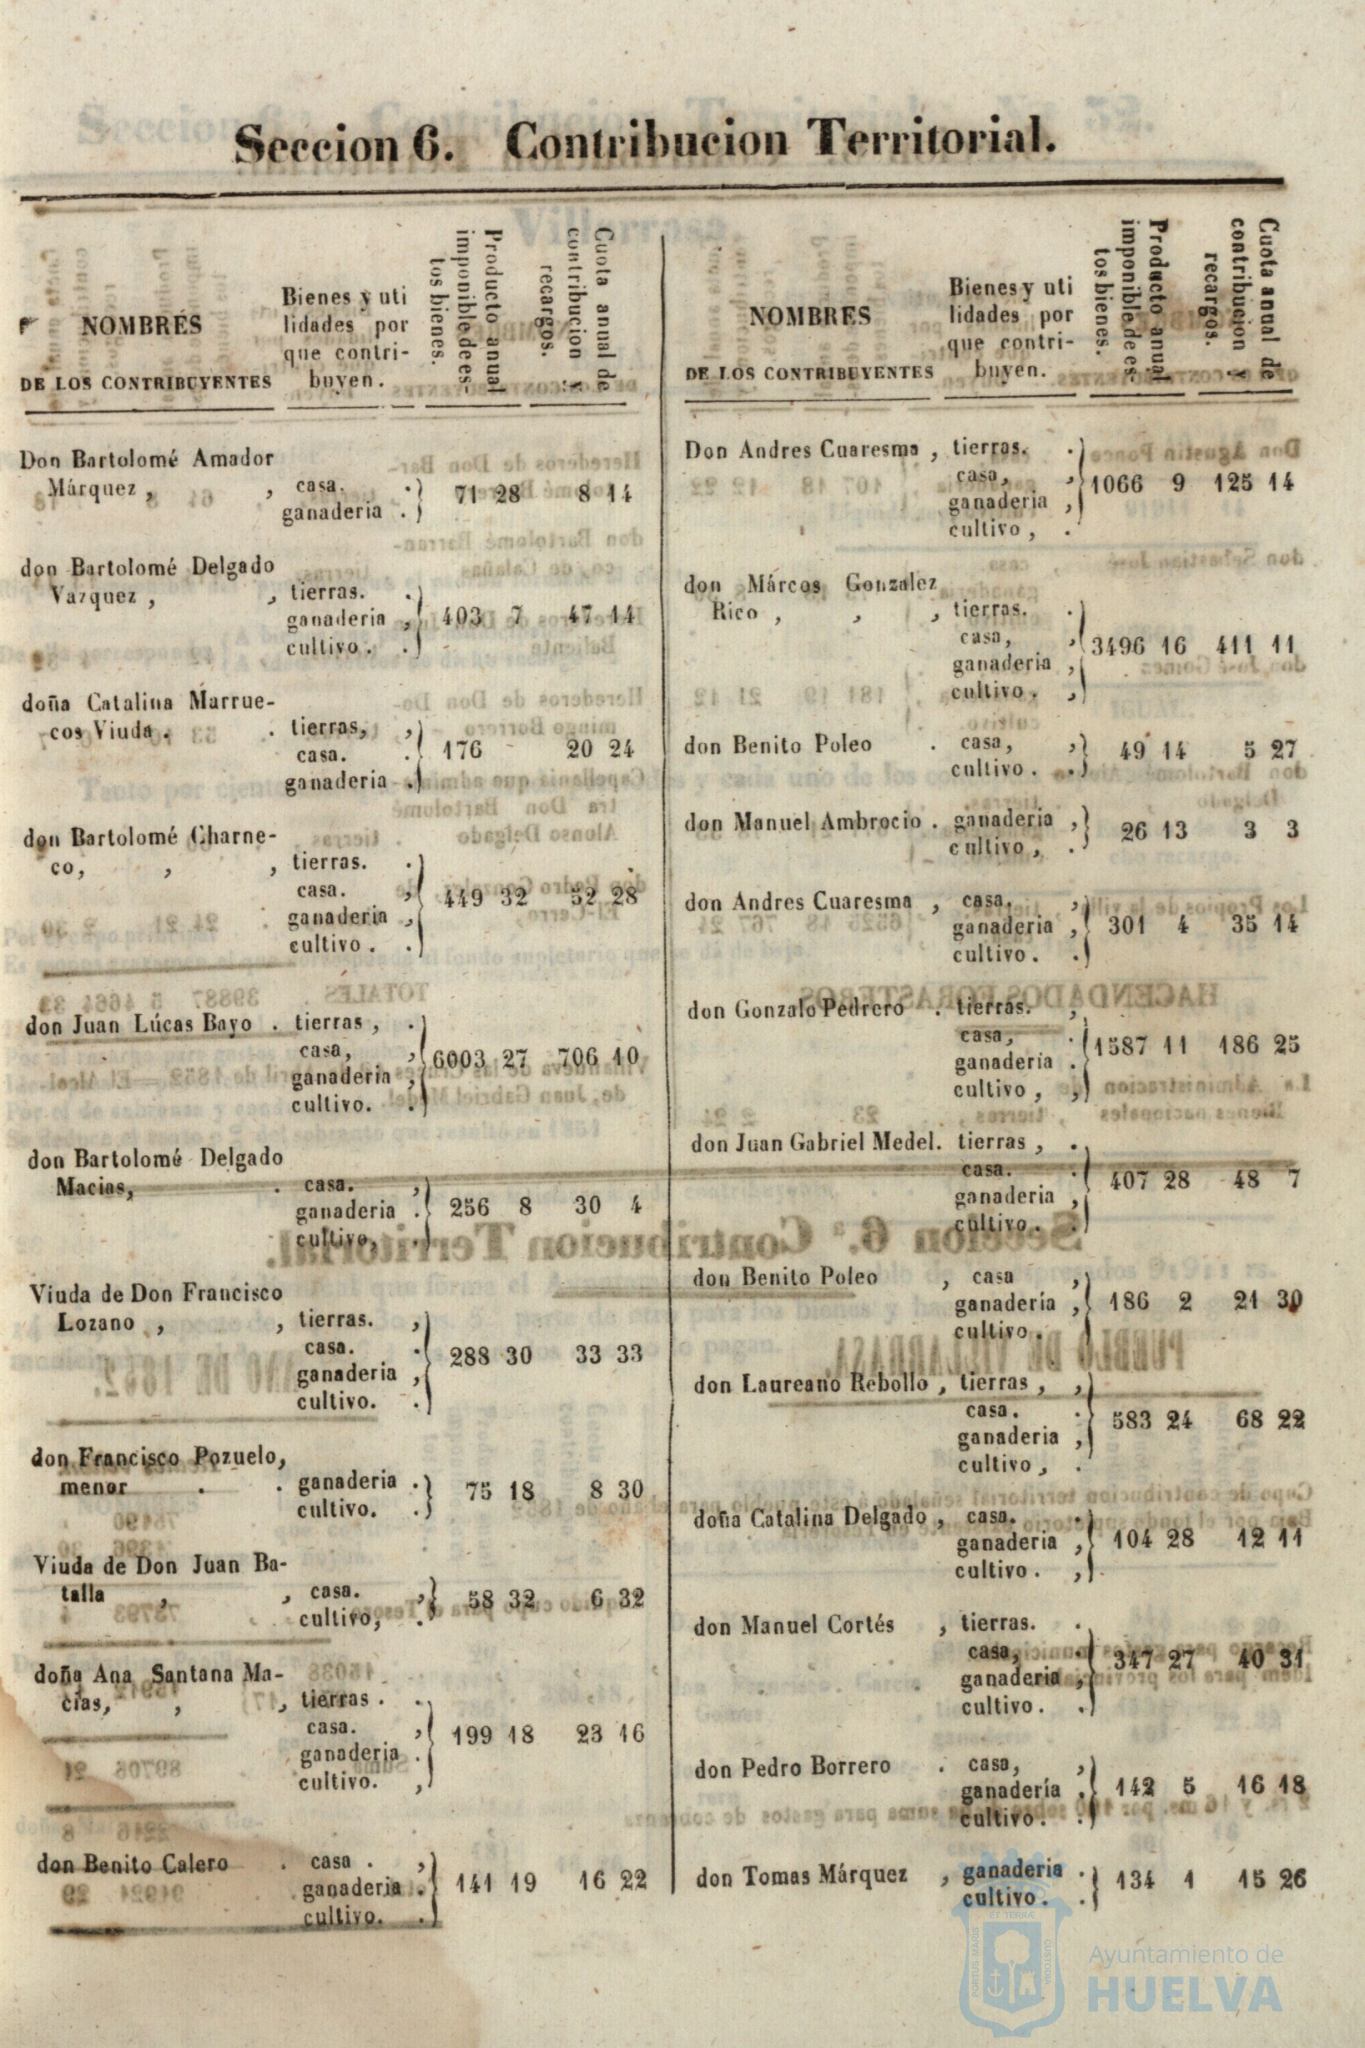 Seccion 6. Contribucion Territorial.
NOMBRES
DE LOS CONTRIBUYENTES
Bienes y uti
lidades por
que contri-
buyen.
Producto anual
imponible de es-
tos bienes.
Cuota anual de
contribucion y
recargos.
Don Bartolomé Amador
Márquez , , casa. .
ganaderia . 71 28 8 14
don Bartolomé Delgado
Vazquez , , tierras. .
ganaderia , 403 7 47 14
cultivo . .
doña Catalina Marrue-
cos Viuda . . tierras, ,
casa. . 176 20 24
ganaderia .
don Bartolomé Charne-
co, , , tierras. .
casa. , 449 32 52 28
ganaderia ,
cultivo . .
don Juan Lúcas Bayo . tierras , .
casa, , 6003 27 706 10
ganaderia ,
cultivo. .
don Bartolomé Delgado
Macias, . casa. ,
ganaderia . 256 8 30 4
cultivo, .
Viuda de Don Francisco
Lozano , , tierras. ,
casa. . 288 30 33 33
ganaderia ,
cultivo. .
don Francisco Pozuelo,
menor . . ganaderia . 75 18 8 30
cultivo. .
Viuda de Don Juan Ba-
talla , , casa. , 58 32 6 32
cultivo, .
doña Ana Santana Ma-
cias, , , tierras . .
casa. , 199 18 23 16
ganaderia .
cultivo. ,
don Benito Calero . casa . ,
ganaderia . 141 19 16 22
cultivo. .
NOMBRES
DE LOS CONTRIBUYENTES
Bienes y uti
lidades por
que contri-
buyen.
Producto anual
imponible de es-
tos bienes.
Cuota anual de
contribucion y
recargos.
Don Andres Cuaresma , tierras. .
casa, , 1066 9 125 14
ganaderia ,
cultivo , .
don Márcos Gonzalez
Rico , , , tierras. .
casa, , 3496 16 411 11
ganaderia ,
cultivo . ,
don Benito Poleo . casa, , 49 14 5 27
cultivo . .
don Manuel Ambrocio . ganaderia , 26 13 3 3
cultivo , .
don Andres Cuaresma , casa. ,
ganaderia , 301 4 35 14
cultivo . .
don Gonzalo Pedrero . tierras. ,
casa, . 1587 11 186 25
ganaderia .
cultivo , ,
don Juan Gabriel Medel. tierras , .
casa. . 407 28 48 7
ganaderia ,
cultivo . .
don Benito Poleo , casa ,
ganadería , 186 2 21 30
cultivo . .
don Laureano Rebollo , tierras , ,
casa. . 583 24 68 22
ganaderia ,
cultivo , .
doña Catalina Delgado , casa. .
ganaderia , 104 28 12 11
cultivo . ,
don Manuel Cortés , tierras. .
casa, , 347 27 40 31
ganaderia ,
cultivo. .
don Pedro Borrero . casa, ,
ganadería , 142 5 16 18
cultivo. .
don Tomas Márquez , ganaderia . 134 1 15 26
cultivo . .
PORTUS MARIS
ET TERRÆ
CUSTODIA
Ayuntamiento de
HUELVA